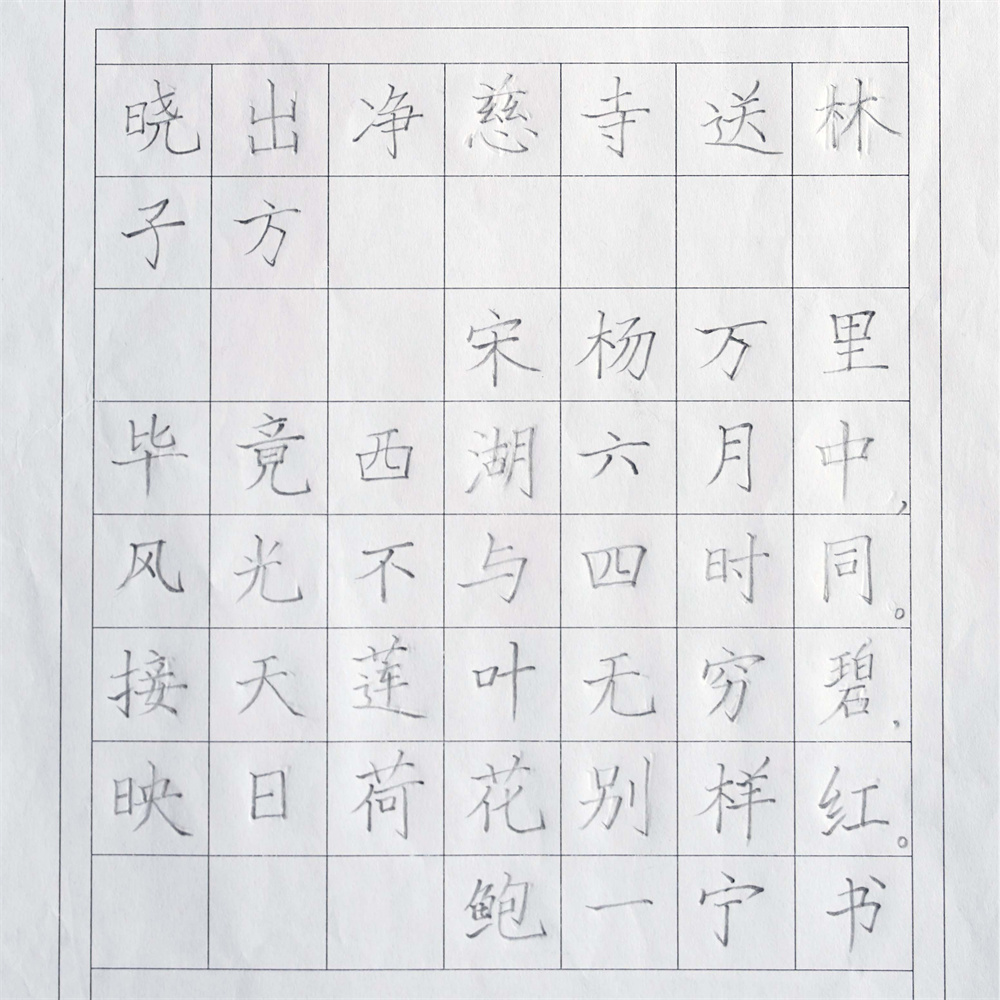 晓出净慈寺送林
子方
宋杨万里
毕竟西湖六月中，
风光不与四时同。
接天莲叶无穷碧，
映日荷花别样红。
鲍一宁书